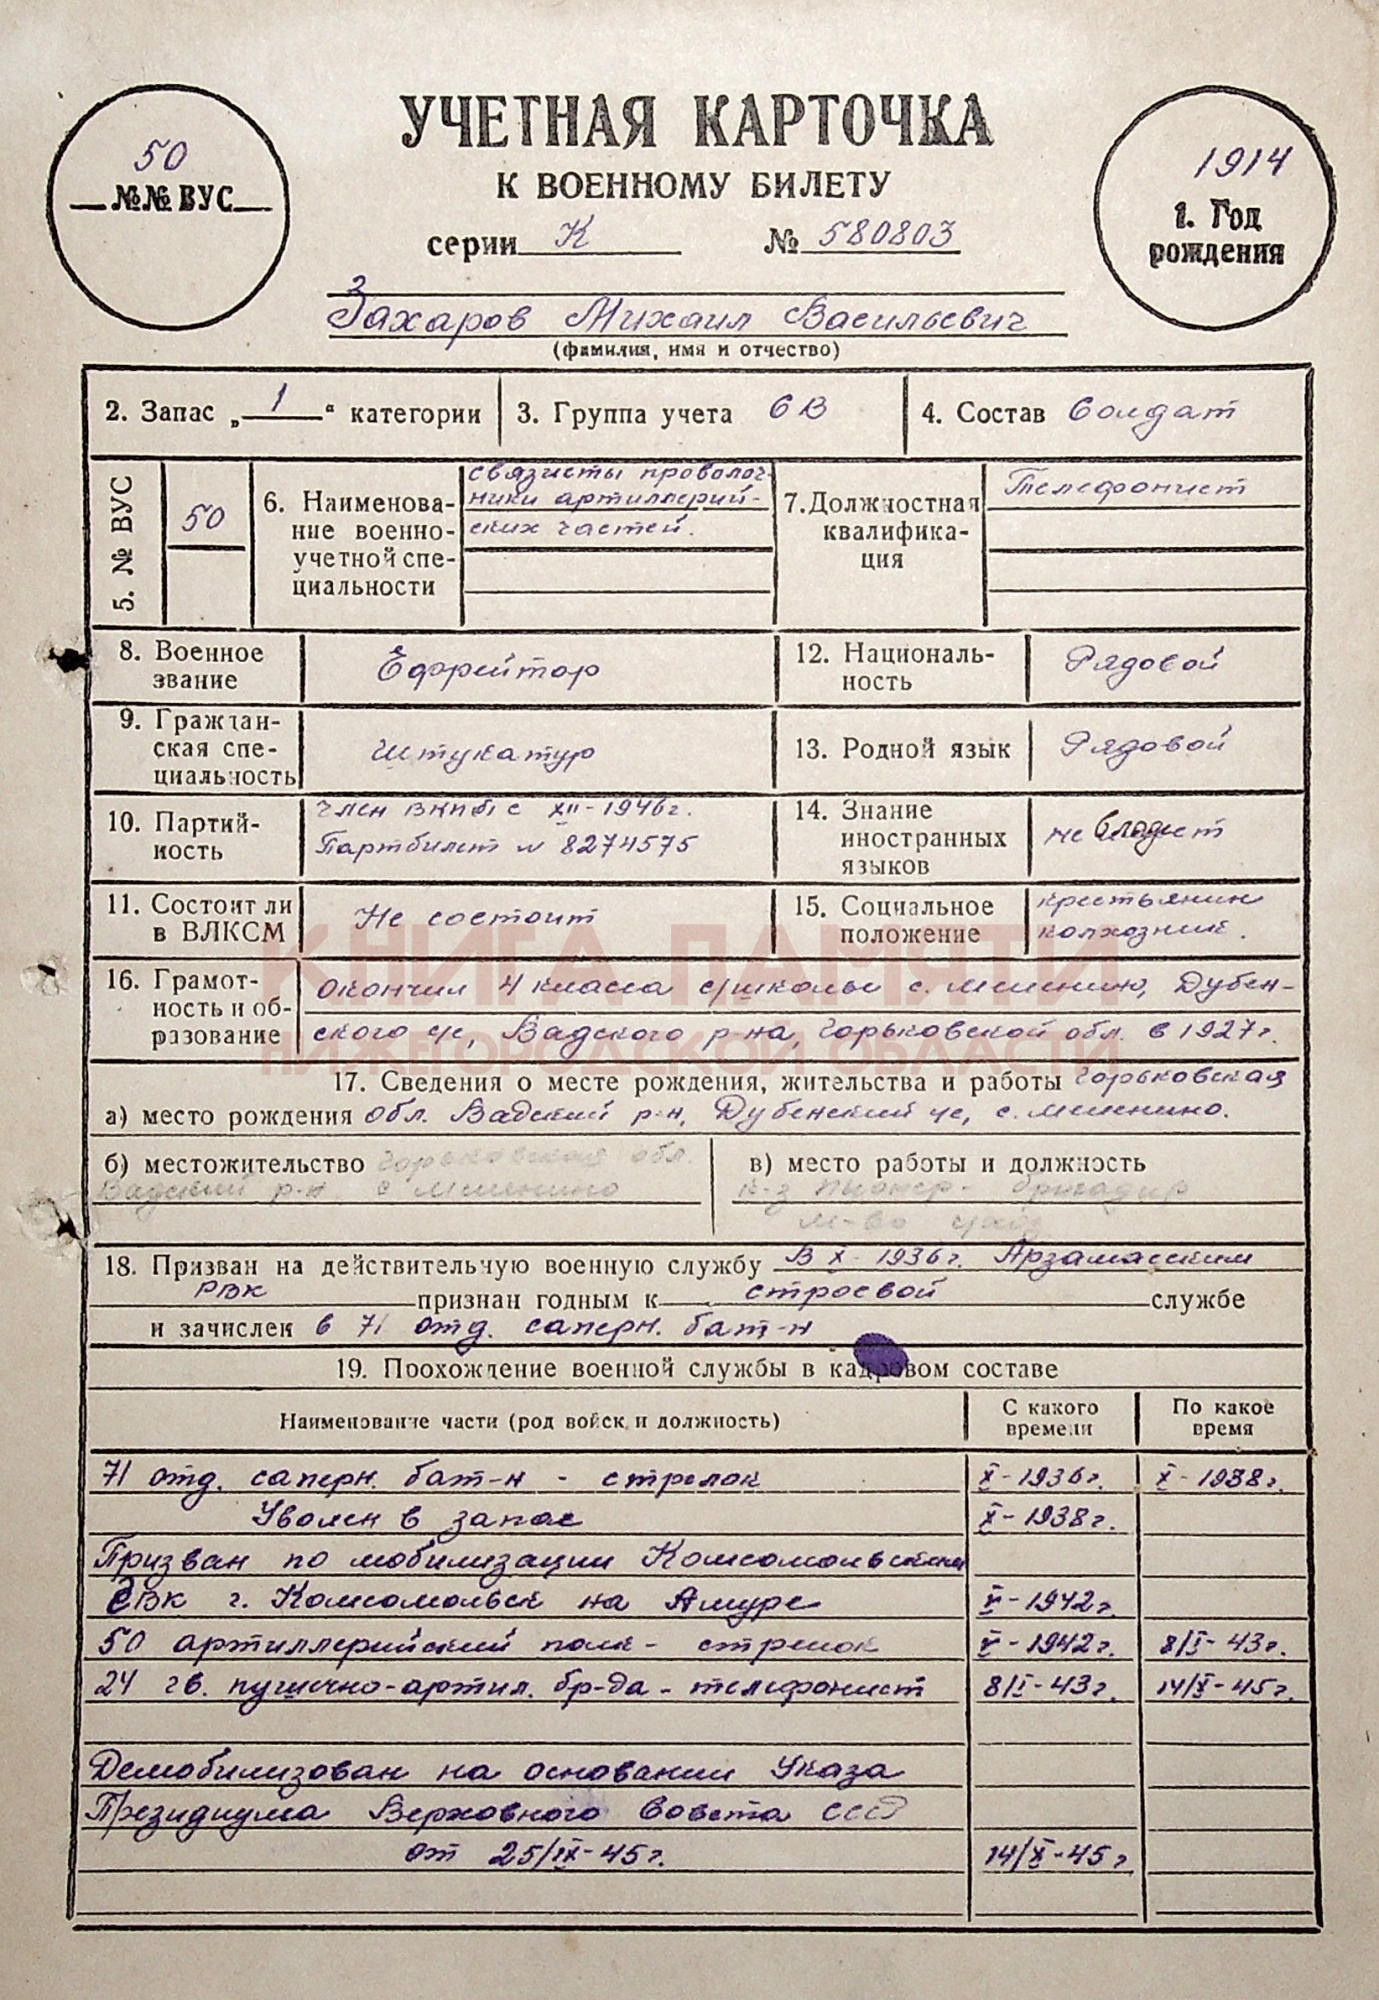 УЧЕТНАЯ КАРТОЧКА
К ВОЕННОМУ БИЛЕТУ
серии К № 580803
50
№№ ВУС
1914
1. Год
рождения
Захаров Михаил Васильевич
(фамилия, имя и отчество)
2. Запас „ 1 “ категории
3. Группа учета СВ
4. Состав Солдат
5. № ВУС
50
6. Наименова-
ние военно-
учетной спе-
циальности
связисты проволоч-
ники артиллерий-
ских частей.
7. Должностная
квалифика-
ция
Телефонист
8. Военное
звание
Ефрейтор
12. Националь-
ность
Рядовой
9. Граждан-
ская спе-
циальность
Штукатур
13. Родной язык
Рядовой
10. Партий-
ность
Член ВКП(б) с XII-1946г.
Партбилет № 8274575
14. Знание
иностранных
языков
не владеет
11. Состоит ли
в ВЛКСМ
Не состоит
15. Социальное
положение
крестьянин
колхозник.
16. Грамот-
ность и об-
разование
окончил 4 класса с/школы с. Дубен-
ского с/с, Вадского р-на, Горьковской обл. в 1927г.
КНИГА ПАМЯТИ
НИЖЕГОРОДСКОЙ ОБЛАСТИ
17. Сведения о месте рождения, жительства и работы Горьковская
а) место рождения обл. Вадский р-н, Дубенский с/с, с.
б) местожительство Горьковская обл.
Вадский р-н с
в) место работы и должность
к-з Пионер - бригадир
18. Призван на действительную военную службу В X - 1936г. Арзамасским
РВК признан годным к строевой службе
и зачислен в 71 отд. саперн. бат-н
19. Прохождение военной службы в кадровом составе
Наименование части (род войск и должность)
С какого
времени
По какое
время
71 отд. саперн. бат-н - стрелок X-1936г. X-1938г.
Уволен в запас X-1938г.
Призван по мобилизации Комсомольским
РВК г. Комсомольск на Амуре V-1942г.
50 артиллерийский полк - стрелок V-1942г. 8/I-43г.
24 гв. пушечно-артил. бр-да - телефонист 8/I-43г. 14/X-45г.
Демобилизован на основании Указа
Президиума Верховного Совета СССР
от 25/IX-45г. 14/X-45г